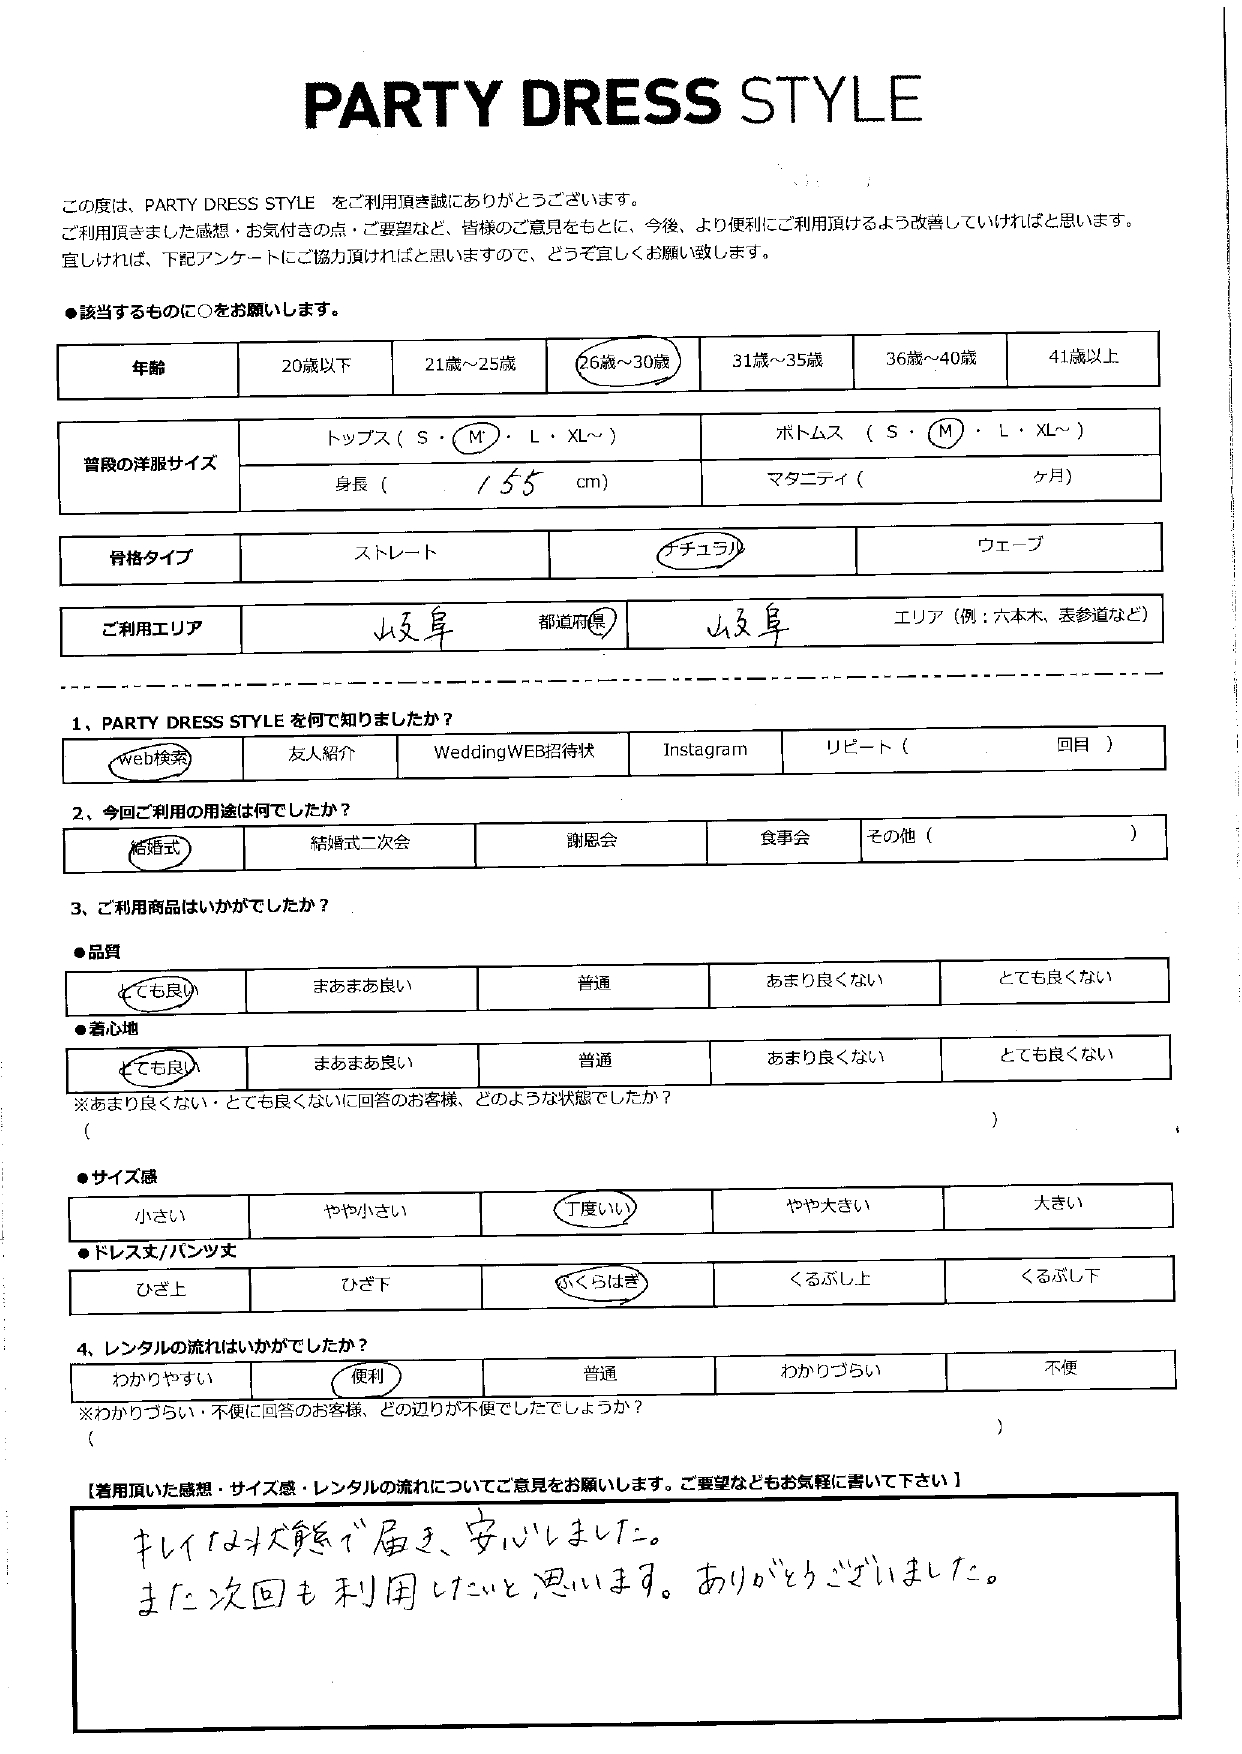 PARTY DRESS STYLE
この度は、PARTY DRESS STYLE をご利用頂き誠にありがとうございます。
ご利用頂きました感想・お気付きの点・ご要望など、皆様のご意見をもとに、今後、より便利にご利用頂けるよう改善していければと思います。
宜しければ、下記アンケートにご協力頂ければと思いますので、どうぞ宜しくお願い致します。
●該当するものに○をお願いします。
年齢 20歳以下 21歳～25歳 26歳～30歳 31歳～35歳 36歳～40歳 41歳以上
普段の洋服サイズ
トップス ( S ・ M ・ L ・ XL～ ) ボトムス ( S ・ M ・ L ・ XL～ )
身長 ( 155 cm) マタニティ ( ヶ月)
骨格タイプ ストレート ナチュラル ウェーブ
ご利用エリア 岐阜 都道府県 岐阜 エリア（例：六本木、表参道など）
1、PARTY DRESS STYLE を何で知りましたか？
web検索 友人紹介 WeddingWEB招待状 Instagram リピート ( 回目 )
2、今回ご利用の用途は何でしたか？
結婚式 結婚式二次会 謝恩会 食事会 その他 ( )
3、ご利用商品はいかがでしたか？
●品質
とても良い まあまあ良い 普通 あまり良くない とても良くない
●着心地
とても良い まあまあ良い 普通 あまり良くない とても良くない
※あまり良くない・とても良くないに回答のお客様、どのような状態でしたか？
( )
●サイズ感
小さい やや小さい 丁度いい やや大きい 大きい
●ドレス丈/パンツ丈
ひざ上 ひざ下 ふくらはぎ くるぶし上 くるぶし下
4、レンタルの流れはいかがでしたか？
わかりやすい 便利 普通 わかりづらい 不便
※わかりづらい・不便に回答のお客様、どの辺りが不便でしたでしょうか？
( )
【着用頂いた感想・サイズ感・レンタルの流れについてご意見をお願いします。ご要望などもお気軽に書いて下さい】
キレイな状態で届き、安心しました。
また次回も利用したいと思います。ありがとうございました。